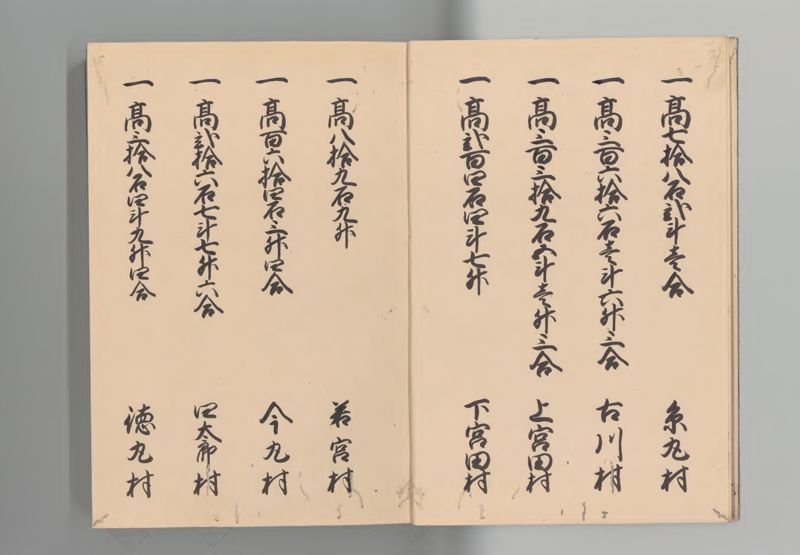 一高七拾八石弐斗壱合 糸丸村
一高三百六拾六石壱斗六升三合 古川村
一高三百三拾九石五斗壱升三合 上宮田村
一高弐百四石四斗七升 下宮田村
一高八拾九石九升 若宮村
一高百六拾四石三升四合 今丸村
一高弐拾六石七斗七升六合 四太郎村
一高三拾八石四斗九升四合 徳丸村